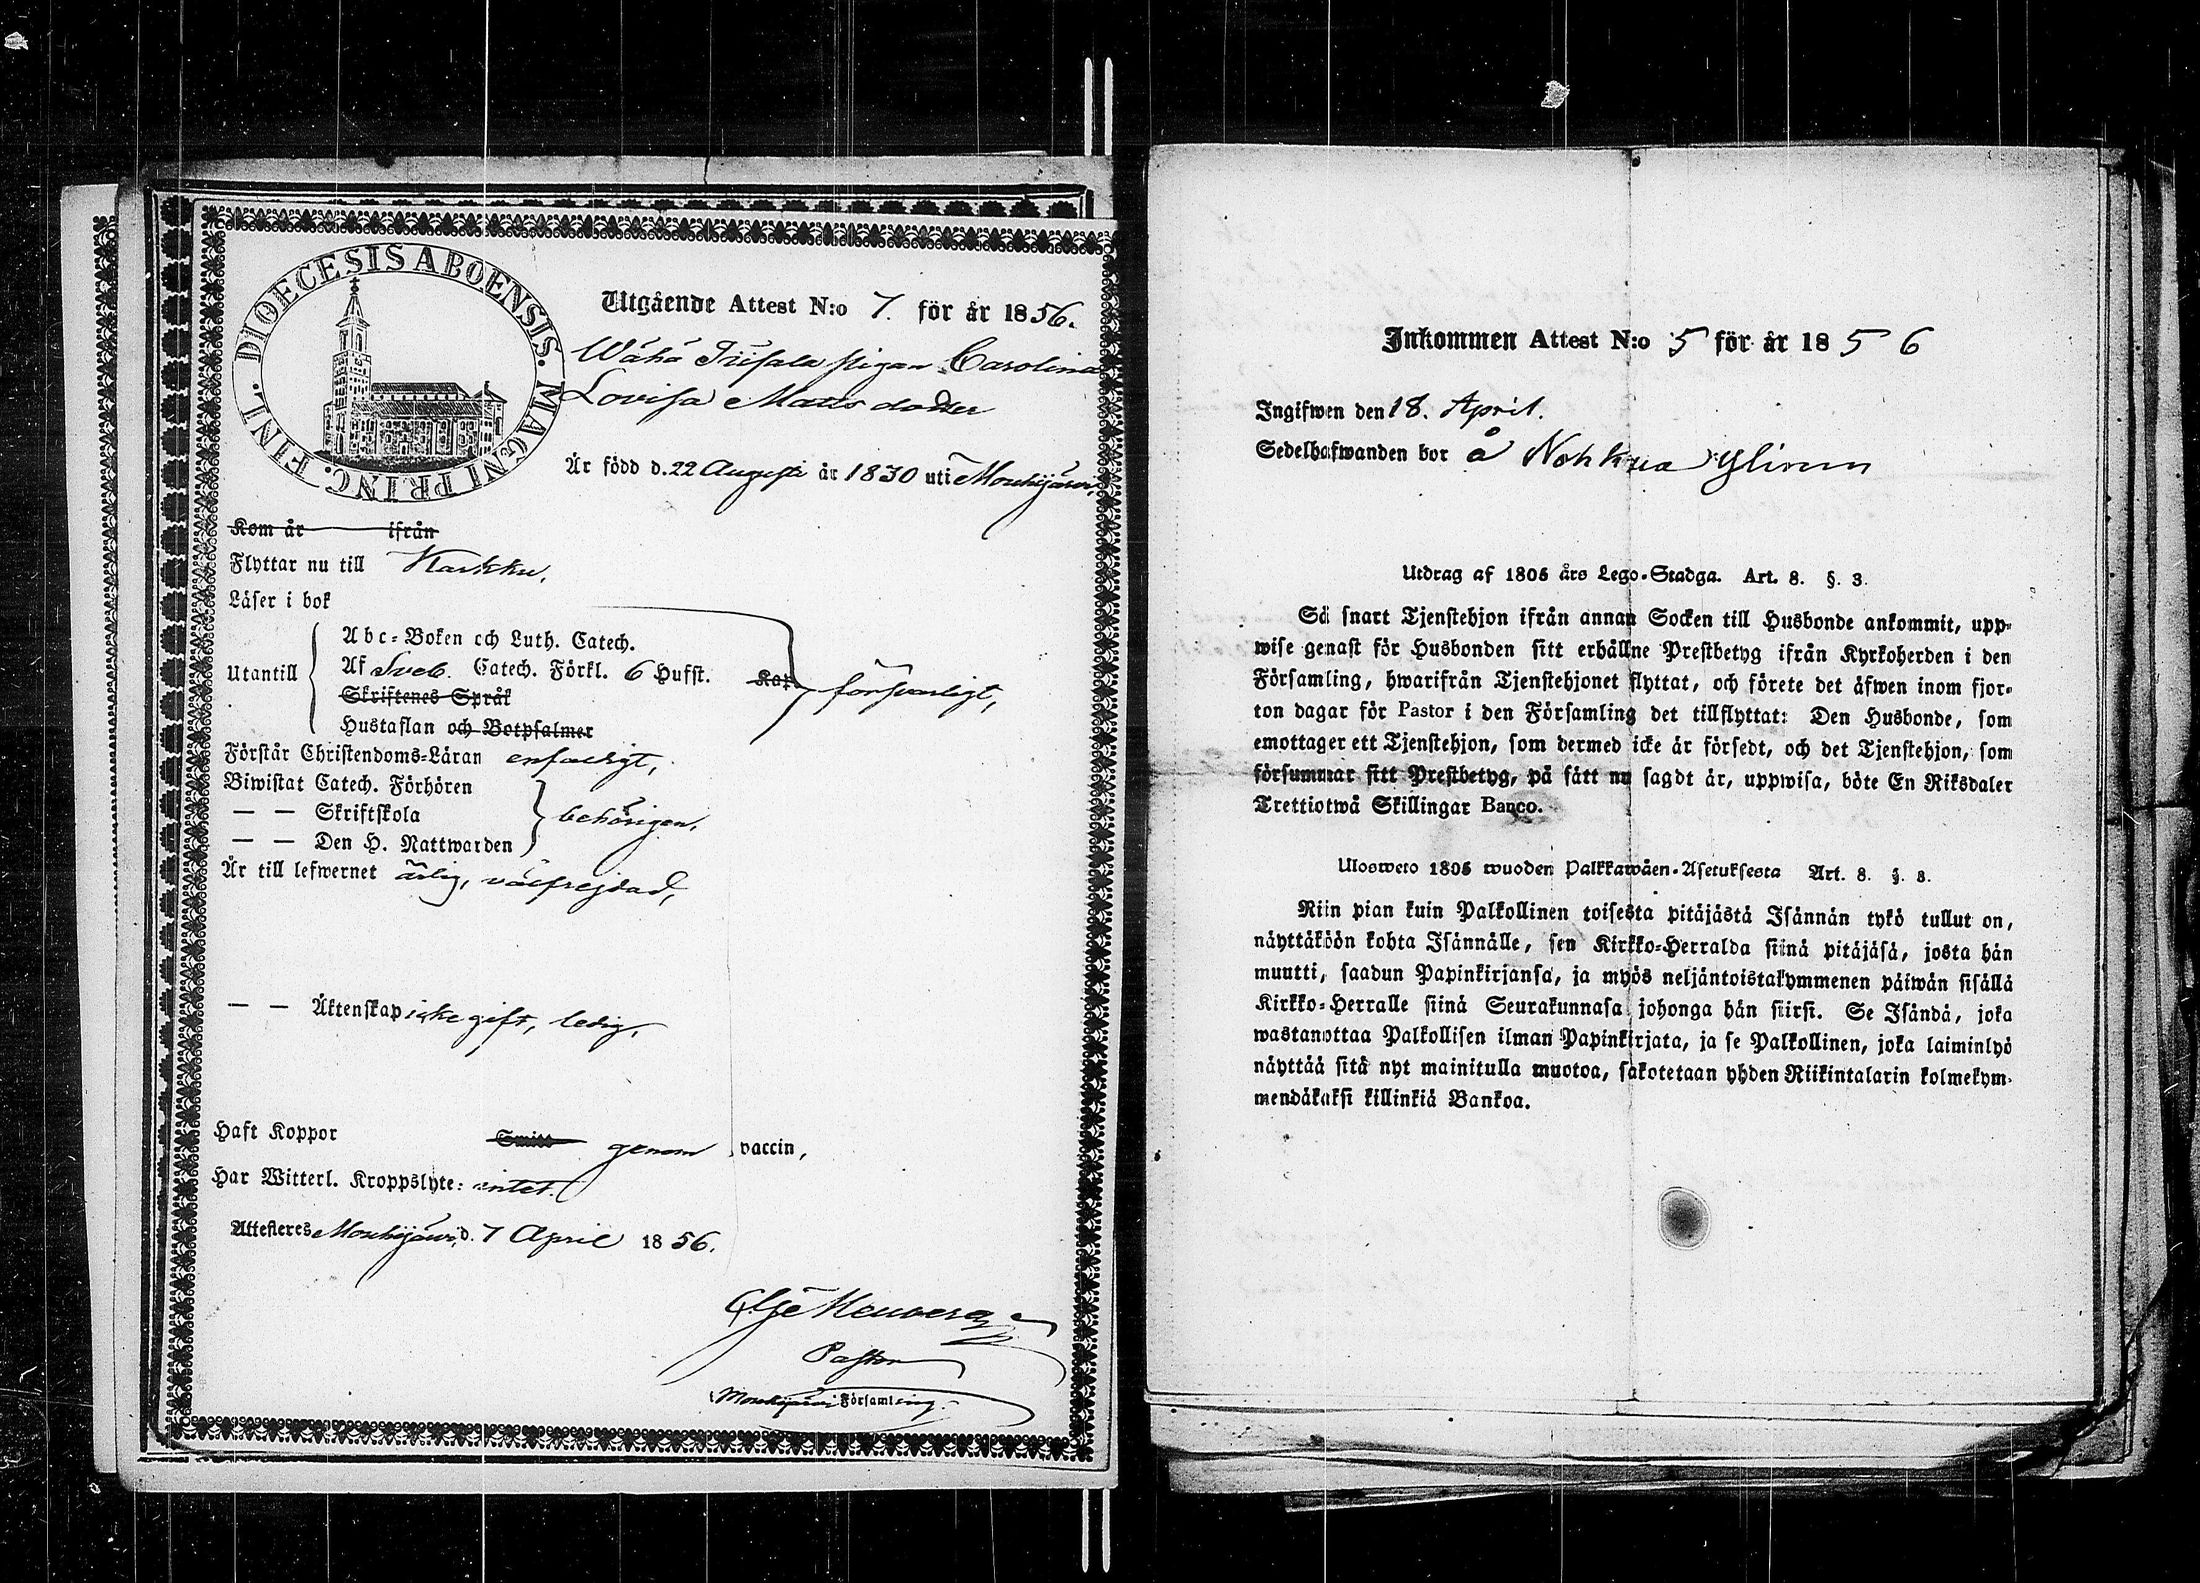 DIOECESIS ABOENSIS. MAGNI PRINC. FINL.
Utgående Attest N:o 7. för år 1856.
Wähä pigan Carolina
Lovisa Matts dotter
Är född d. 22 Augusti år 1830 uti Mouhijärvi,
Kom år ifrån
Flyttar nu till Karkku.
Läser i bok
Utantill
Abc-Boken och Luth. Catech.
Af Sveb. Catech. Förkl. 6 Hufst. Kap
Skriftenes Språk
Hustaflan och Botpsalmer
försvarligt,
Förstår Christendoms-Läran enfaldigt,
Biwistat Catech. Förhören
— — Skriftskola
— — Den H. Nattwarden
behörigen.
Är till lefwernet ärlig, välfrejdad,
— — Äktenskap icke gift, ledig.
Haft Koppor Smitt genom vaccin,
Har Witterl. Kroppslyte: intet.
Attesteres Mouhijärvi d. 7 April 1856.
Pastor
Mouhijärvi Församling.
Inkommen Attest N:o 5 för år 1856
Ingifwen den 18. April.
Sedelhafwanden bor å Nohkua
Utdrag af 1805 års Lego-Stadga. Art. 8. §. 3.
Så snart Tjenstehjon ifrån annan Socken till Husbonde ankommit, upp-
wise genast för Husbonden sitt erhållne Prestbetyg ifrån Kyrkoherden i den
Församling, hwarifrån Tjenstehjonet flyttat, och förete det äfwen inom fjor-
ton dagar för Pastor i den Församling det tillflyttat: Den Husbonde, som
emottager ett Tjenstehjon, som dermed icke är försedt, och det Tjenstehjon, som
försummar sitt Prestbetyg, på sätt nu sagdt är, uppwisa, böte En Riksdaler
Trettiotwå Skillingar Banco.
Ulosweto 1805 wuoden Palkkawäen-Asetuksesta Art. 8. §. 3.
Niin pian kuin Palkollinen toisesta pitäjästä Isännän tykö tullut on,
näyttäköön kohta Isännälle, sen Kirkko-Herralda siinä pitäjäsä, josta hän
muutti, saadun Papinkirjansa, ja myös neljäntoistakymmenen päiwän sisällä
Kirkko-Herralle siinä Seurakunnasa johonga hän siirsi. Se Isändä, joka
wastanottaa Palkollisen ilman Papinkirjata, ja se Palkollinen, joka laiminlyö
näyttää sitä nyt mainitulla muotoa, sakotetaan yhden Riikintalarin kolmekym-
mendäkaksi killinkiä Bankoa.